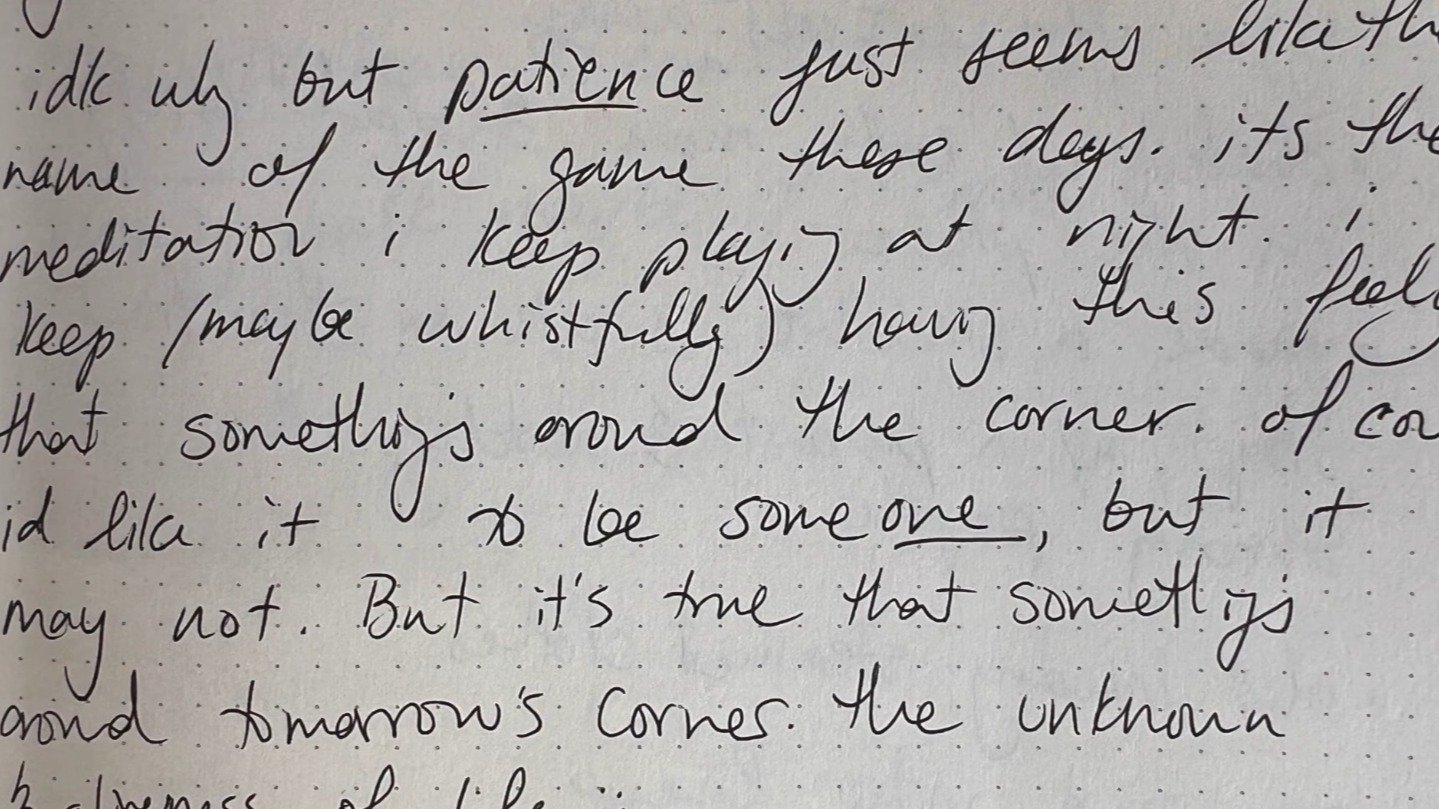 idk why but patience just seems like th
name of the game these days. its the
meditation i keep playing at night. i
keep (maybe whistfully) having this feel
that somethings around the corner. of cou
id like it to be someone, but it
may not. But it's true that somethings
around tomorrow's corner. the unknown
of life